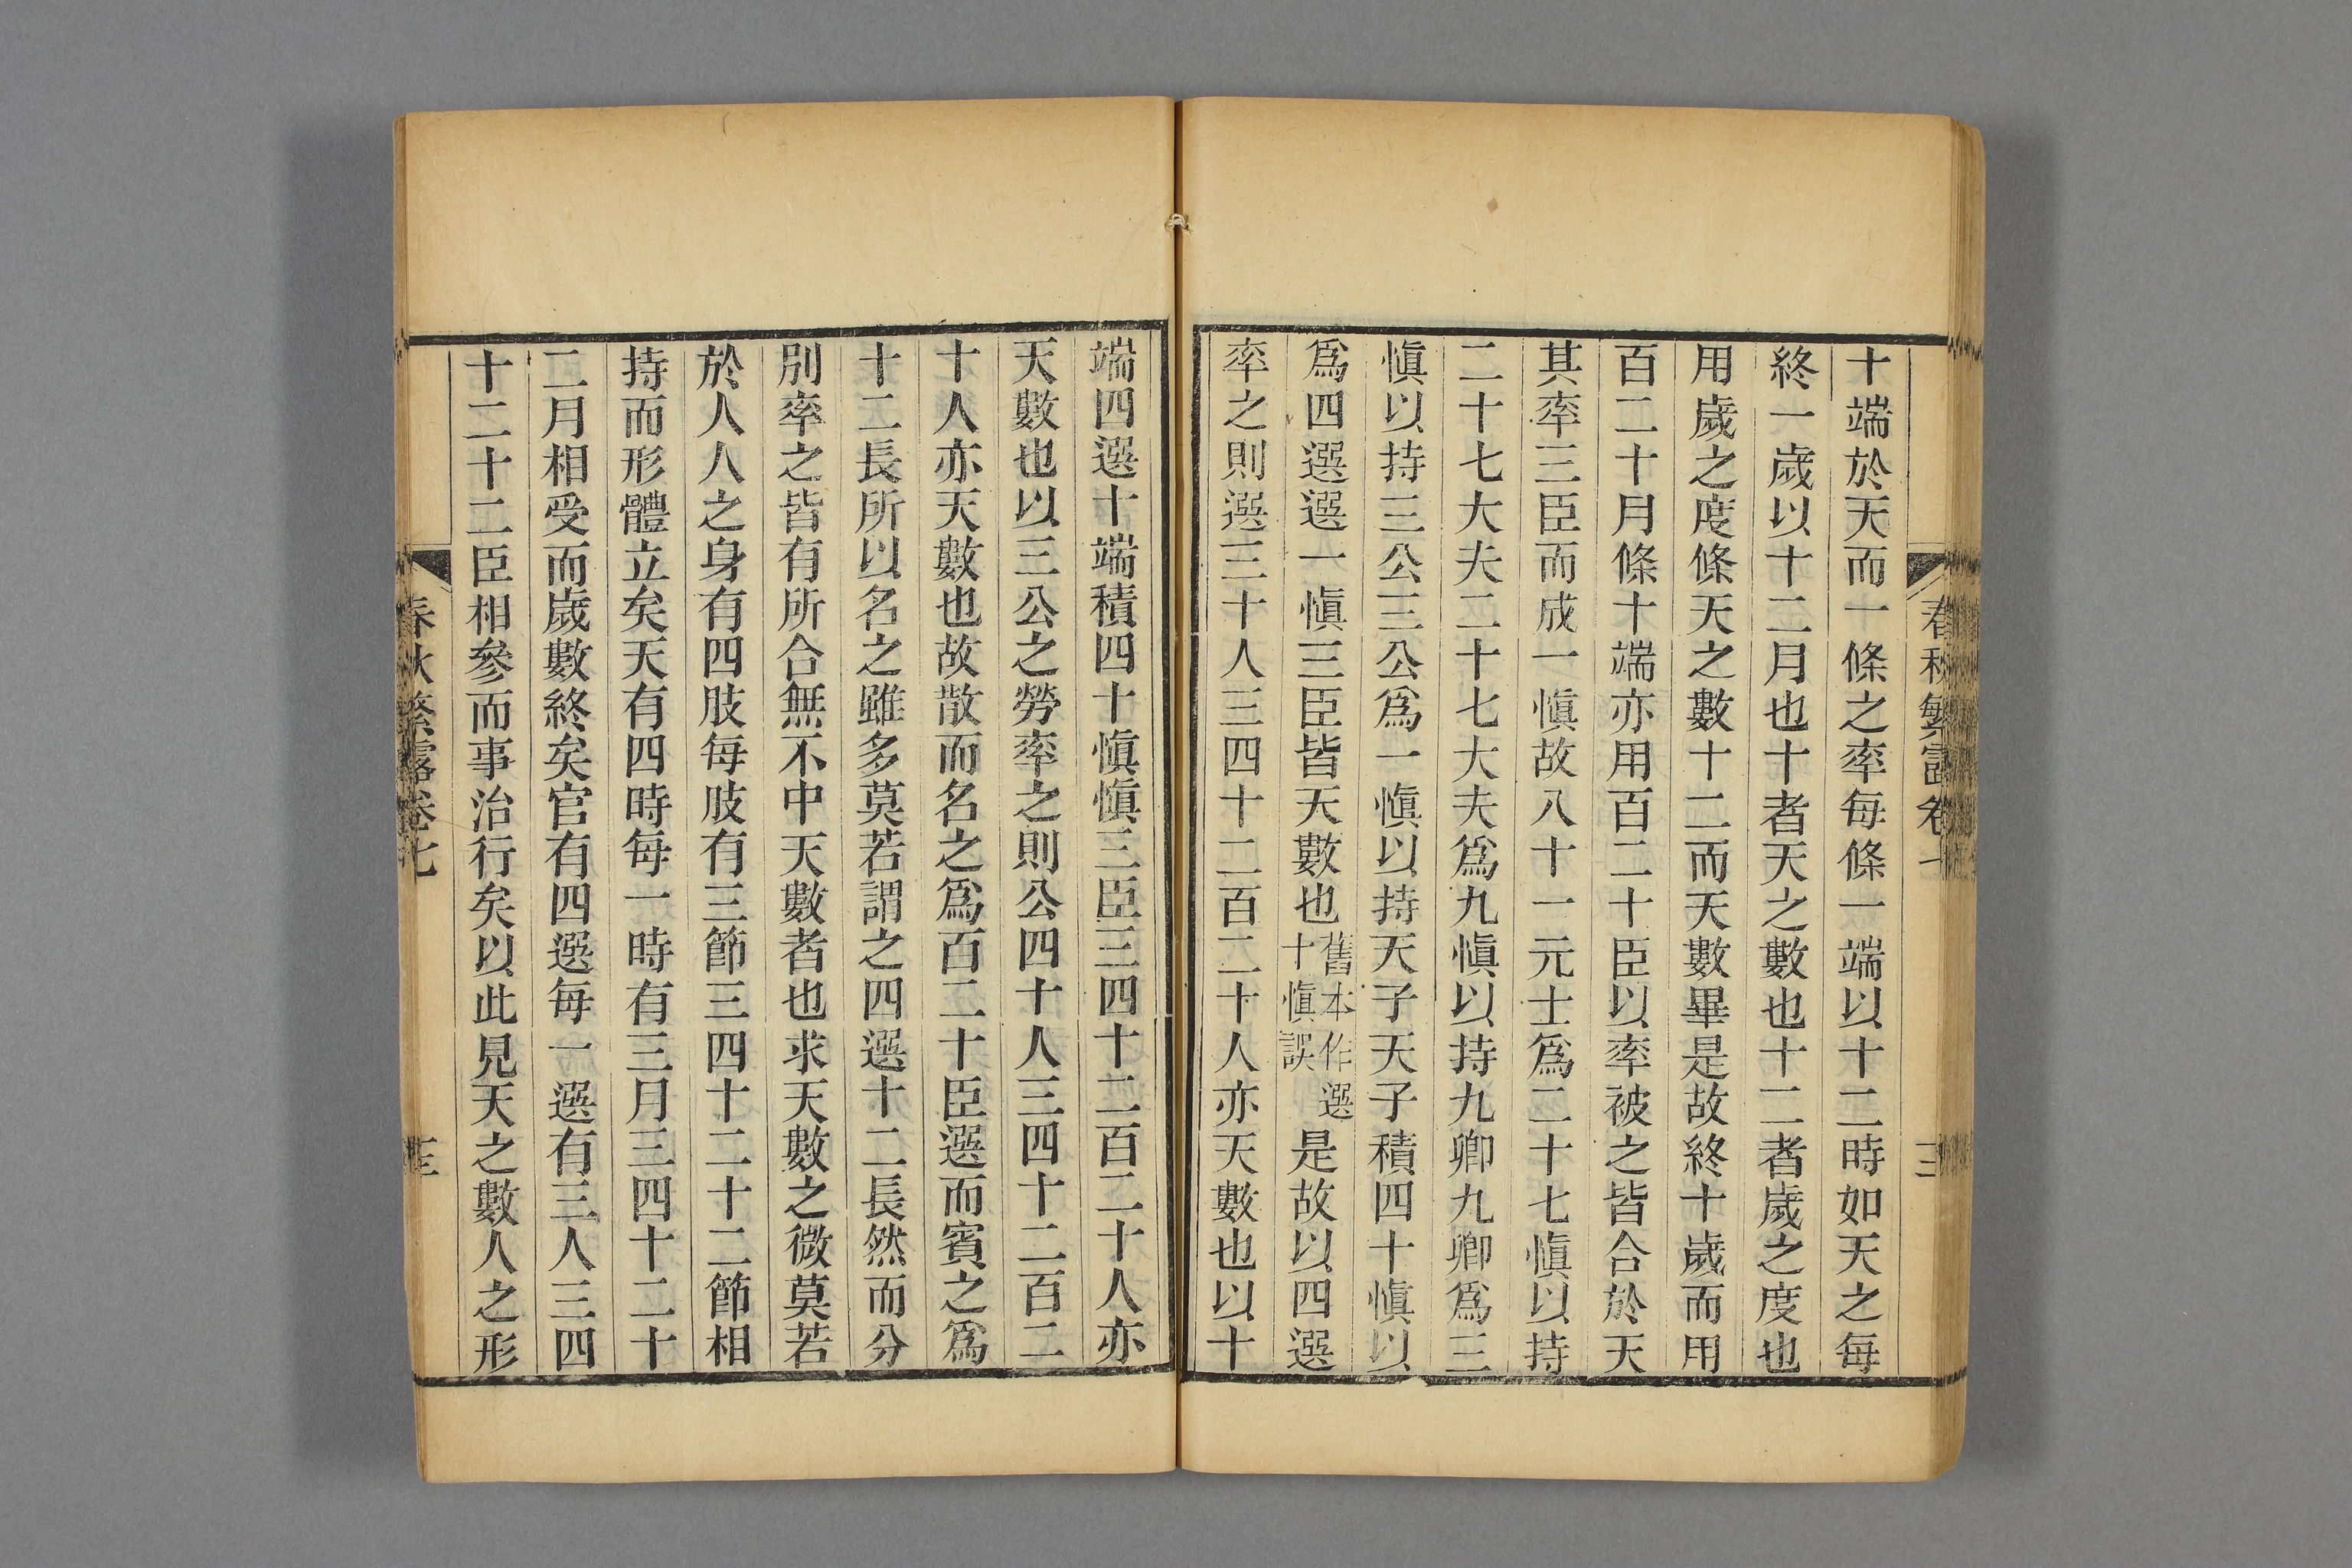 春秋繁露卷十
十端於天而一條之率每條一端以十二時如天之每
終一歲以十二月也十者天之數也十二者歲之度也
用歲之度條天之數十二而天數畢是故終十歲而用
百二十月條十端亦用百二十臣以率被之皆合於天
其率三臣而成一愼故八十一元士爲二十七愼以持
二十七大夫二十七大夫爲九愼以持九卿九卿爲三
愼以持三公三公爲一愼以持天子天子積四十愼以
爲四選選一愼三臣皆天數也
舊本作選
十愼誤
是故以四選
率之則選三十人三四十二百二十人亦天數也以十
端四選十端積四十愼愼三臣三四十二百二十人亦
天數也以三公之勞率之則公四十人三四十二百二
十人亦天數也故散而名之爲百二十臣選而賓之爲
十二長所以名之雖多莫若謂之四選十二長然而分
別率之皆有所合無不中天數者也求天數之微莫若
於人人之身有四肢每肢有三節三四十二十二節相
持而形體立矣天有四時每一時有三月三四十二十
二月相受而歲數終矣官有四選每一選有三人三四
十二十二臣相參而事治行矣以此見天之數人之形
春秋繁露卷七